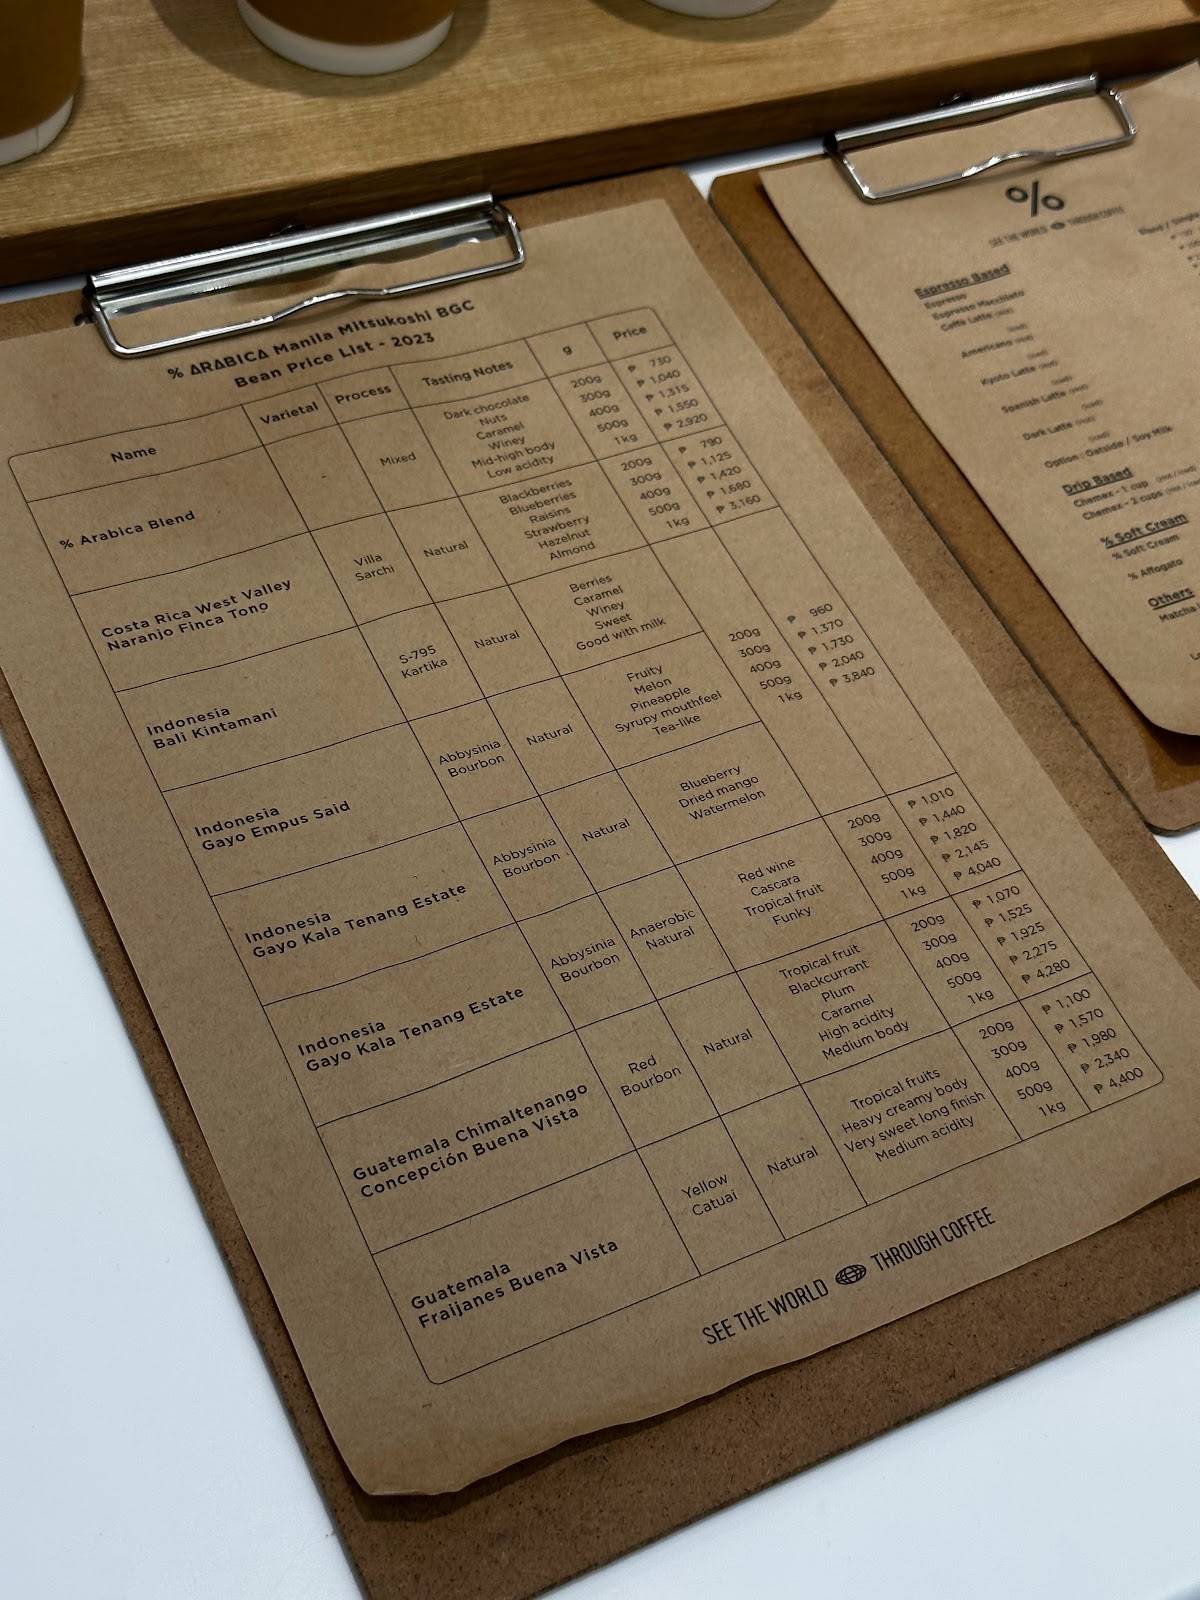 % ARABICA Manila Mitsukoshi BGC
Bean Price List - 2023
Name Varietal Process Tasting Notes g Price
% Arabica Blend
Mixed
Dark chocolate
Nuts
Caramel
Winey
Mid-high body
Low acidity
200g ₱ 730
300g ₱ 1,040
400g ₱ 1,315
500g ₱ 1,550
1kg ₱ 2,920
Costa Rica West Valley
Naranjo Finca Tono
Villa
Sarchi
Natural
Blackberries
Blueberries
Raisins
Strawberry
Hazelnut
Almond
200g ₱ 790
300g ₱ 1,125
400g ₱ 1,420
500g ₱ 1,680
1kg ₱ 3,160
Indonesia
Bali Kintamani
S-795
Kartika
Natural
Berries
Caramel
Winey
Sweet
Good with milk
Indonesia
Gayo Empus Said
Abbysinia
Bourbon
Natural
Fruity
Melon
Pineapple
Syrupy mouthfeel
Tea-like
200g ₱ 960
300g ₱ 1,370
400g ₱ 1,730
500g ₱ 2,040
1kg ₱ 3,840
Indonesia
Gayo Kala Tenang Estate
Abbysinia
Bourbon
Natural
Blueberry
Dried mango
Watermelon
Indonesia
Gayo Kala Tenang Estate
Abbysinia
Bourbon
Anaerobic
Natural
Red wine
Cascara
Tropical fruit
Funky
200g ₱ 1,010
300g ₱ 1,440
400g ₱ 1,820
500g ₱ 2,145
1kg ₱ 4,040
Guatemala Chimaltenango
Concepción Buena Vista
Red
Bourbon
Natural
Tropical fruit
Blackcurrant
Plum
Caramel
High acidity
Medium body
200g ₱ 1,070
300g ₱ 1,525
400g ₱ 1,925
500g ₱ 2,275
1kg ₱ 4,280
Guatemala
Fraijanes Buena Vista
Yellow
Catuai
Natural
Tropical fruits
Heavy creamy body
Very sweet long finish
Medium acidity
200g ₱ 1,100
300g ₱ 1,570
400g ₱ 1,980
500g ₱ 2,340
1kg ₱ 4,400
SEE THE WORLD THROUGH COFFEE
%
SEE THE WORLD THROUGH COFFEE
Espresso Based
Espresso
Espresso Macchiato
Caffe Latte
Americano
Kyoto Latte
Spanish Latte
Dark Latte
Option : Oatside / Soy Milk
Drip Based
Chemex - 1 cup
Chemex - 2 cups
% Soft Cream
% Soft Cream
% Affogato
Others
Matcha